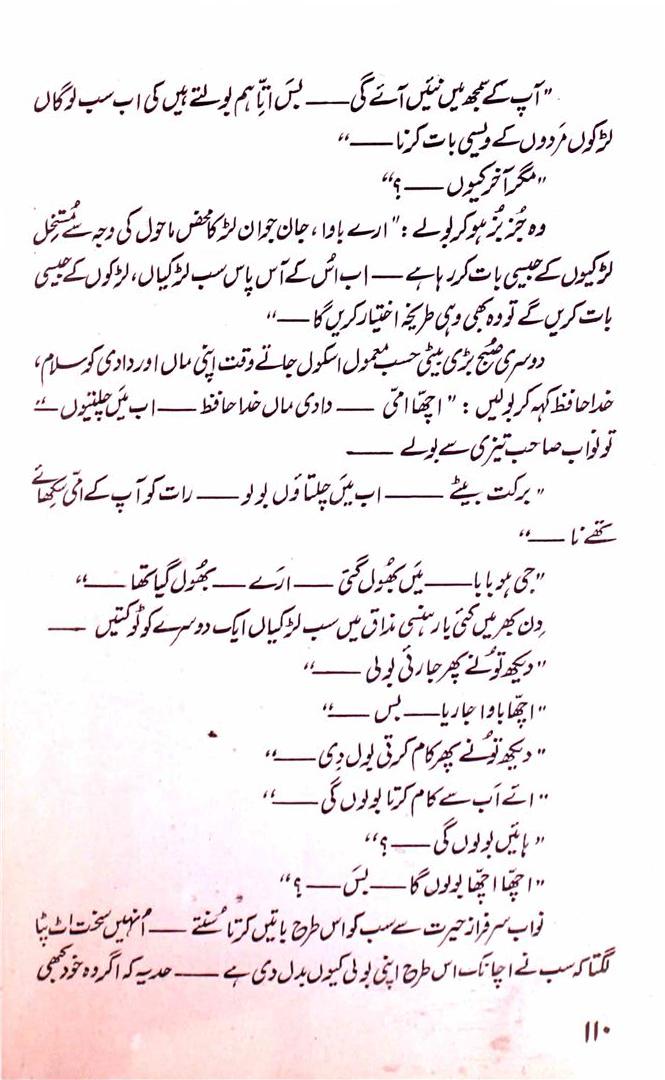 "آپ کے سمجھ میں نئیں آئے گی —— بسَ اتّا ہم بولتے ہیں کی اب سب لوگاں
لڑکوں مَردوں کے ویسی بات کرنا ——"
"مگر آخر کیوں —— ؟"
وہ جُز بُز ہو کر بولے : "ارے باوا، جان جوان لڑکا محض ماحول کی وجہ سے مُستخِل
لڑکیوں کے جیسی بات کر رہا ہے —— اب اُس کے آس پاس سب لڑکیاں، لڑکوں کے جیسی
بات کریں گے تو وہ بھی وہی طریقہ اختیار کریں گا ——"
دوسری صُبح بڑی بیٹی حسب معمول اسکول جاتے وقت اپنی ماں اور دادی کو سلام،
خدا حافظ کہہ کر بولیں : "اچھّا امّی —— دادی ماں خدا حافظ —— اب مَیں چلتیوں ——"
تو نواب صاحب تیزی سے بولے ——
"برکت بیٹے —— اب مَیں چلتاؤں بولو —— رات کو آپ کے امّی سِکھائے
تھے نا ——"
"جی ہو بابا —— مَیں بھُول گئی —— ارَے —— بھُول گیا تھا ——"
دِن بھر میں کئی بار ہنسی مذاق میں سب لڑکیاں ایک دوسرے کو ٹوکتیں ——
"دیکھ توُ نے پھر جارئی بولی ——"
"اچھّا باوا جاریا —— بس ——"
"دیکھ توُ نے پھر کام کرتی بول دِی ——"
"ائے اَب سے کام کرتا بولوں گی ——"
"ہائیں بولوں گی —— ؟"
"اچھّا اچھّا بولوں گا —— بسَ —— ؟"
نواب سرفراز حیرت سے سب کو اس طرح باتیں کرتا سُنتے —— اُنہیں سخت اٹ پٹا
لگتا کہ سب نے اچانک اس طرح اپنی بولی کیوں بدل دی ہے —— حد یہ کہ اگر وہ خود کبھی
۱۱۰